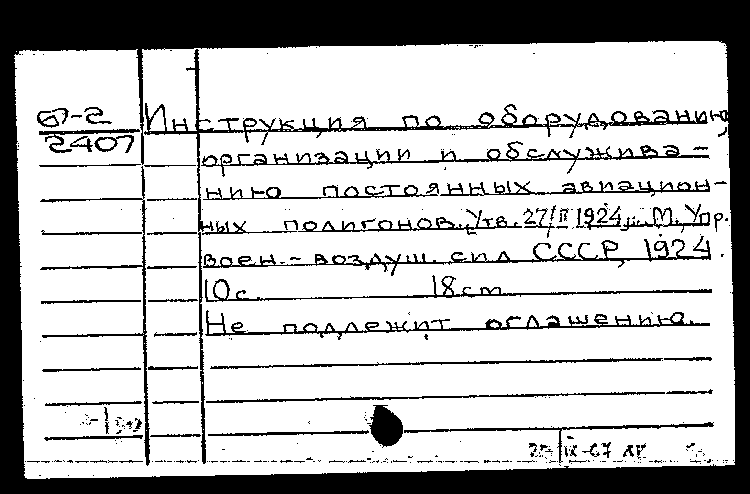 67-2
2407
Инструкция по оборудованию,
организации и обслужива-
нию постоянных авиацион-
ных полигонов. Утв. 27/II 1924 г. М., Упр.
воен.-воздуш. сил СССР, 1924.
10 с. 18 cm
Не подлежит оглашению.
IX-67